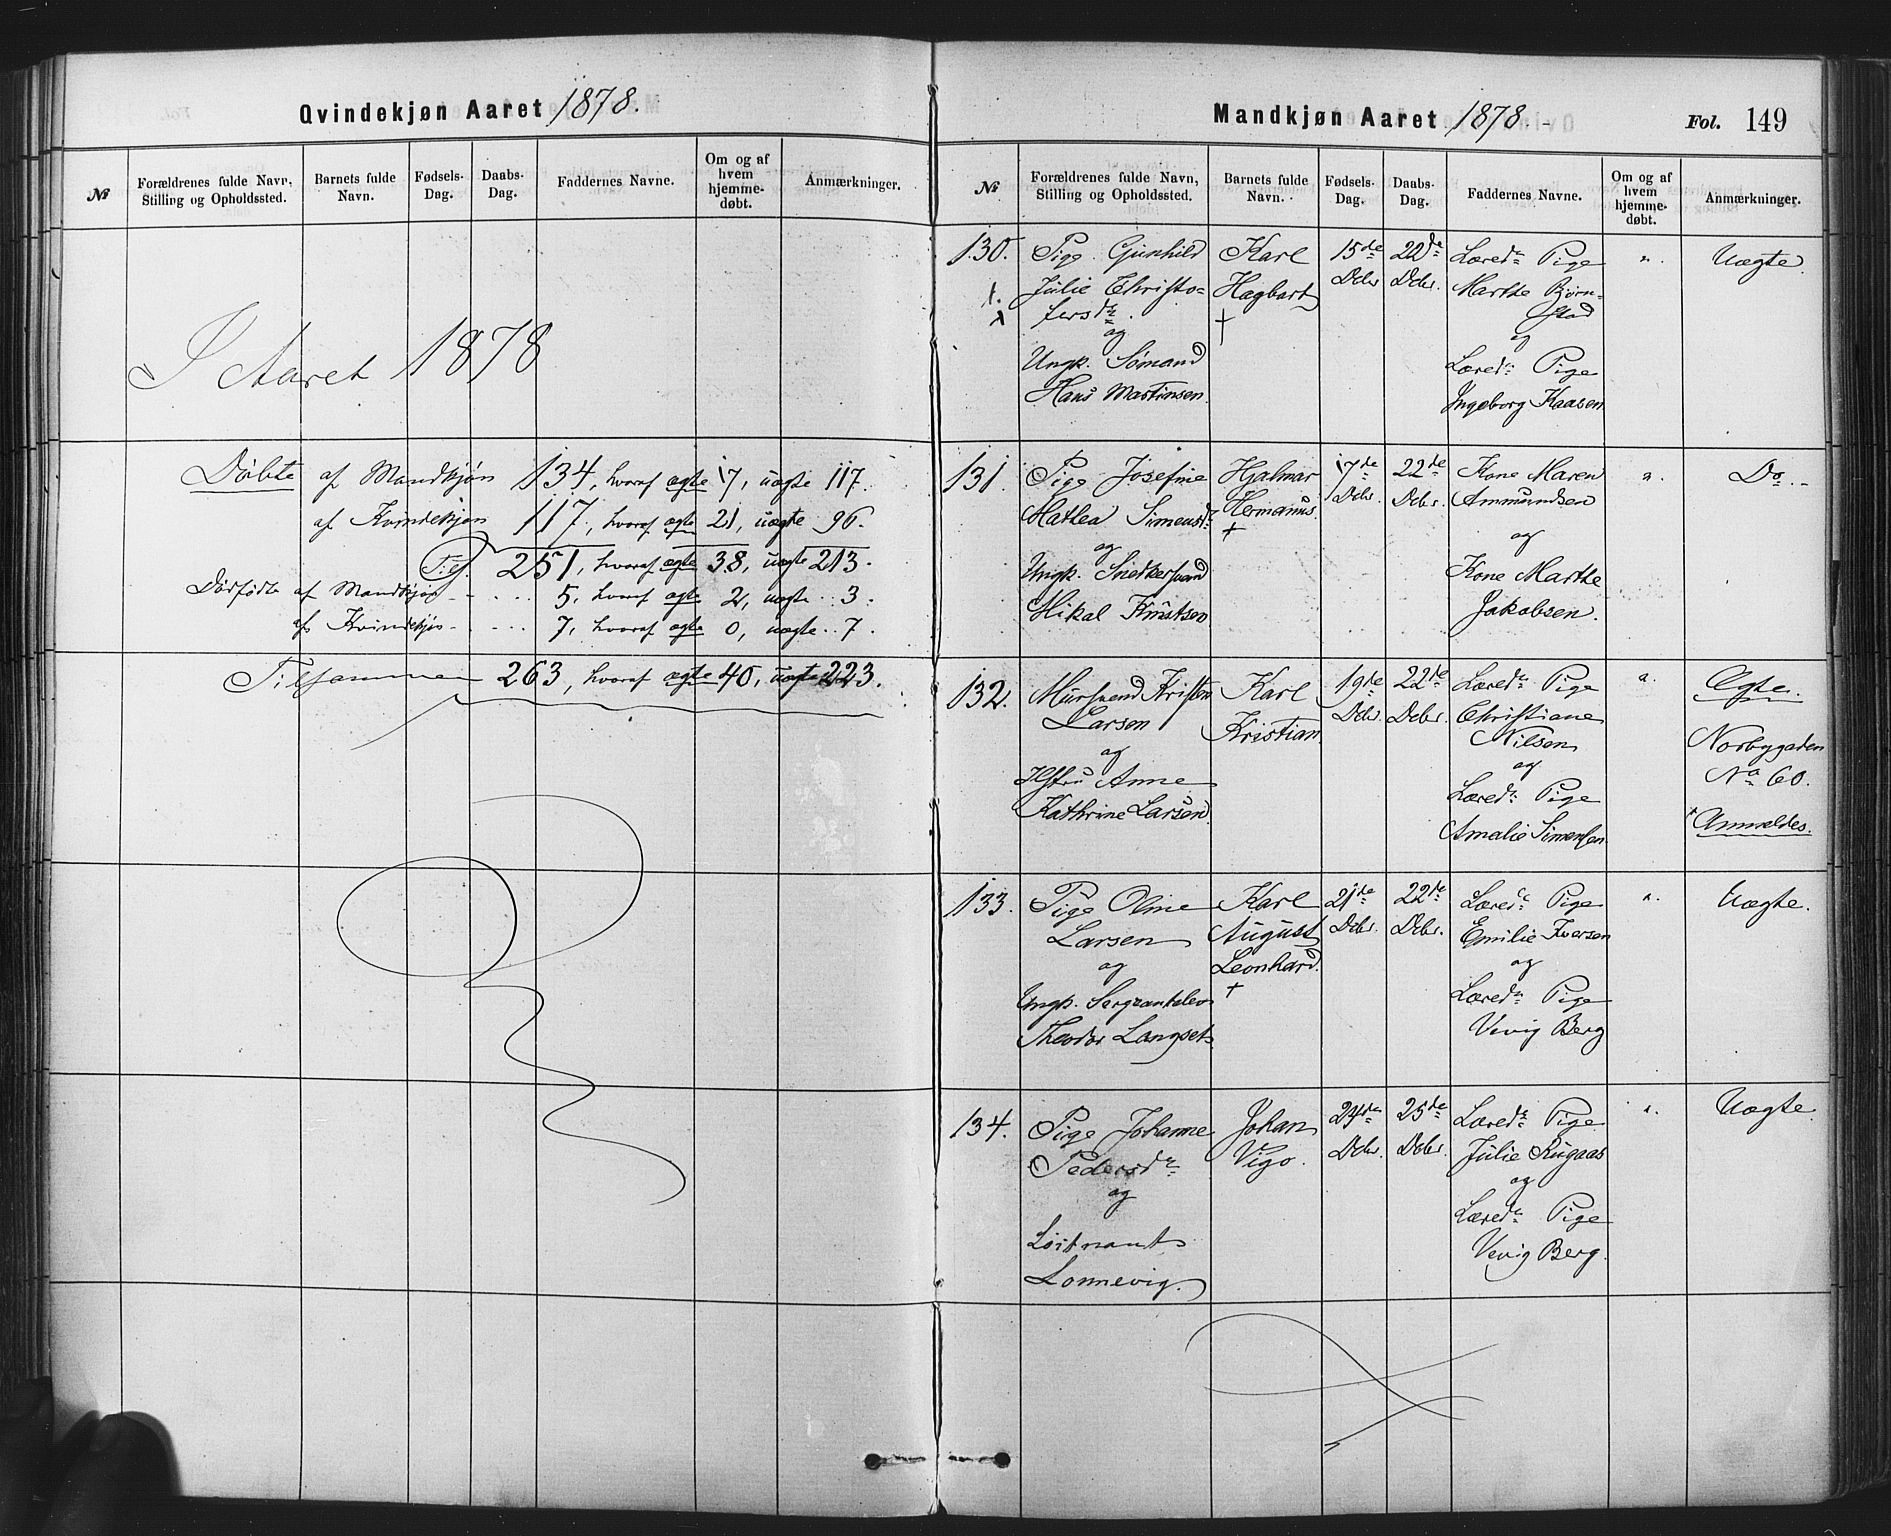 Qvindekjøn Aaret 1878.
№
Forældrenes fulde Navn,
Stilling og Opholdssted.
Barnets fulde
Navn.
Fødsels-
Dag.
Daabs-
Dag.
Faddernes Navne.
Om og af
hvem
hjemme-
døbt.
Anmærkninger.
I Aaret 1878
Døbte af Mandkjøn 134, hvoraf ægte 17, uægte 117.
af Kvindekjøn 117, hvoraf ægte 21, uægte 96.
Tils. 251, hvoraf ægte 38, uægte 213.
Dødfødte af Mandkjøn - - - - 5, hvoraf ægte 2, uægte .. 3.
af Kvindekjøn - - - - 7, hvoraf ægte 0, uægte .. 7.
Tilsammen 263, hvoraf ægte 40, uægte 223.
Mandkjøn Aaret 1878.
Fol. 149
№
Forældrenes fulde Navn,
Stilling og Opholdssted.
Barnets fulde
Navn.
Fødsels-
Dag.
Daabs-
Dag.
Faddernes Navne.
Om og af
hvem
hjemme-
døbt.
Anmærkninger.
130.
Pige Gunhild
Julie Christo-
fersdr.
og
Ungk. Sømand
Hans Martinsen.
Karl
Hagbart
†
15de
Dcbr.
22de
Dcbr.
Læredr. Pige
Marthe Bjørn-
stad
og
Læredr. Pige
Ingeborg Kaasen
".
Uægte.
131.
Pige Josefine
Mathea Simensdr.
og
Ungk. Snedkersvend
Mikal Knutsen
Hjalmar
Hermanus.
†
17de
Dcbr.
22de
Dcbr.
Kone Maren
Ammundsen
og
Kone Marthe
Jakobsen.
".
Do. -
132.
Mursvend Kristen
Larsen
og
Hstru Anne
Kathrine Larsen.
Karl
Kristian.
19de
Dcbr.
22de
Dcbr.
Læredr. Pige
Christiane
Nilsen
og
Læredr. Pige
Amalie Simensen.
".
Ægte.
Norbygaden
No 60.
Anmeldes.
133.
Pige Oline
Larsen
og
Ungk. Sergeantelev
Theodor Langset.
Karl
August
Leonhard.
†
21de
Dcbr.
22de
Dcbr.
Læredr. Pige
Emilie Iversen
og
Læredr. Pige
Vevig Berg
".
Uægte.
134.
Pige Johanne
Pedersdr.
og
Løitnant
Lonnevig.
Johan
Vigo.
24de
Dcbr.
25de
Dcbr.
Læredr. Pige
Julie Rugaas
og
Læredr. Pige
Vevig Berg.
".
Uægte.